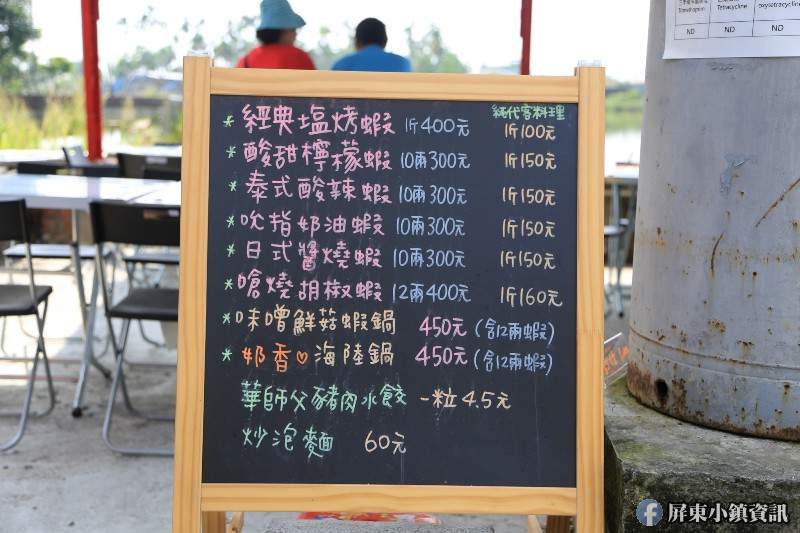 純代客料理
* 經典塩烤蝦 1斤400元 1斤100元
* 酸甜檸檬蝦 10兩300元 1斤150元
* 泰式酸辣蝦 10兩300元 1斤150元
* 吮指奶油蝦 10兩300元 1斤150元
* 日式醬燒蝦 10兩300元 1斤150元
* 嗆燒胡椒蝦 12兩400元 1斤160元
* 味噌鮮菇蝦鍋 450元 (含12兩蝦)
* 奶香♡海陸鍋 450元 (含12兩蝦)
華師父豬肉水餃 一粒4.5元
炒泡麵 60元
Tetracycline
ND ND ND
屏東小鎮資訊